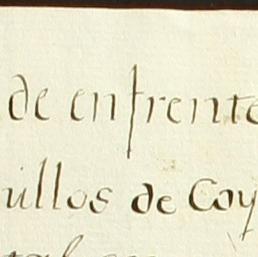 de enfrente
uillos de Coy